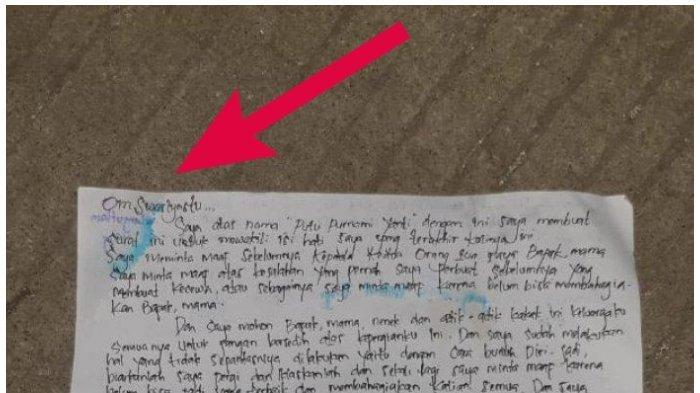 Om Swastyastu...
Saya atas nama "Putu Purnami Yanti" dengan ini saya membuat
surat ini untuk mewakili isi hati saya yang terakhir kalinya ini
Saya meminta maaf sebelumnya kepada kedua orang tua saya Bapak, mama
Saya minta maaf atas kesalahan yang pernah saya perbuat sebelumnya yang
membuat kecewa, atau sebagainya saya minta maaf karena belum bisa membahagia-
kan Bapak, mama.
Dan saya mohon Bapak, mama, nenek dan adik-adik kakak ini keluargaku
semuanya untuk jangan bersedih atas kepergianku ini. Dan saya sudah melakukan
hal yang tidak sepantasnya dilakukan yaitu dengan cara bunuh diri. Jadi,
biarkanlah saya pergi dan ikhlaskanlah dan sekali lagi saya minta maaf karena
belum bisa jadi yang terbaik dan membahagiakan kalian semua. Dan saya